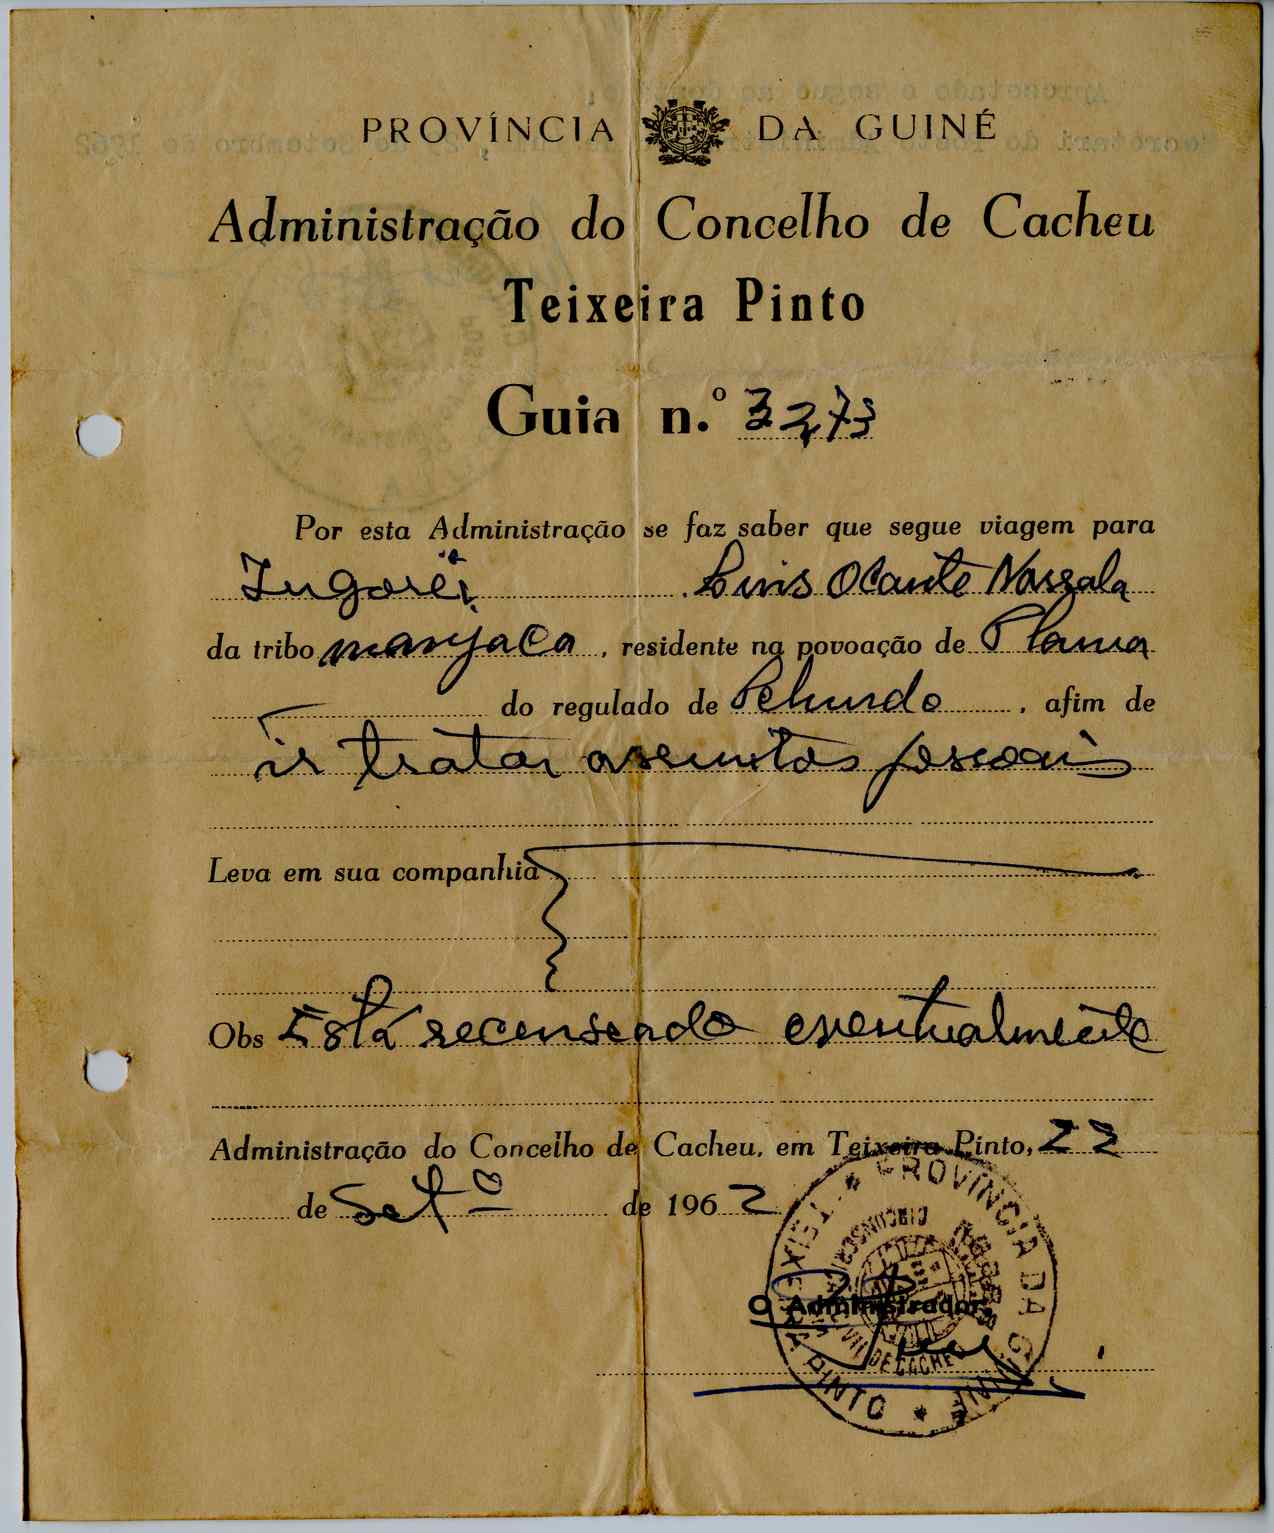 PROVÍNCIA DA GUINÉ
Administração do Concelho de Cacheu
Teixeira Pinto
Guia n.º 3273
Por esta Administração se faz saber que segue viagem para
Ingorei Luis Ocante Nassala
da tribo manjaca, residente na povoação de Plama
do regulado de Pelundo, afim de
ir tratar assuntos pessoais
Leva em sua companhia
Obs Está recenseado eventualmente
Administração do Concelho de Cacheu, em Teixeira Pinto, 22
de Setº de 1962
O Administrador,
PROVÍNCIA DA GUINÉ
TEIXEIRA PINTO
CIRCUNSCRI
DE CACHEU